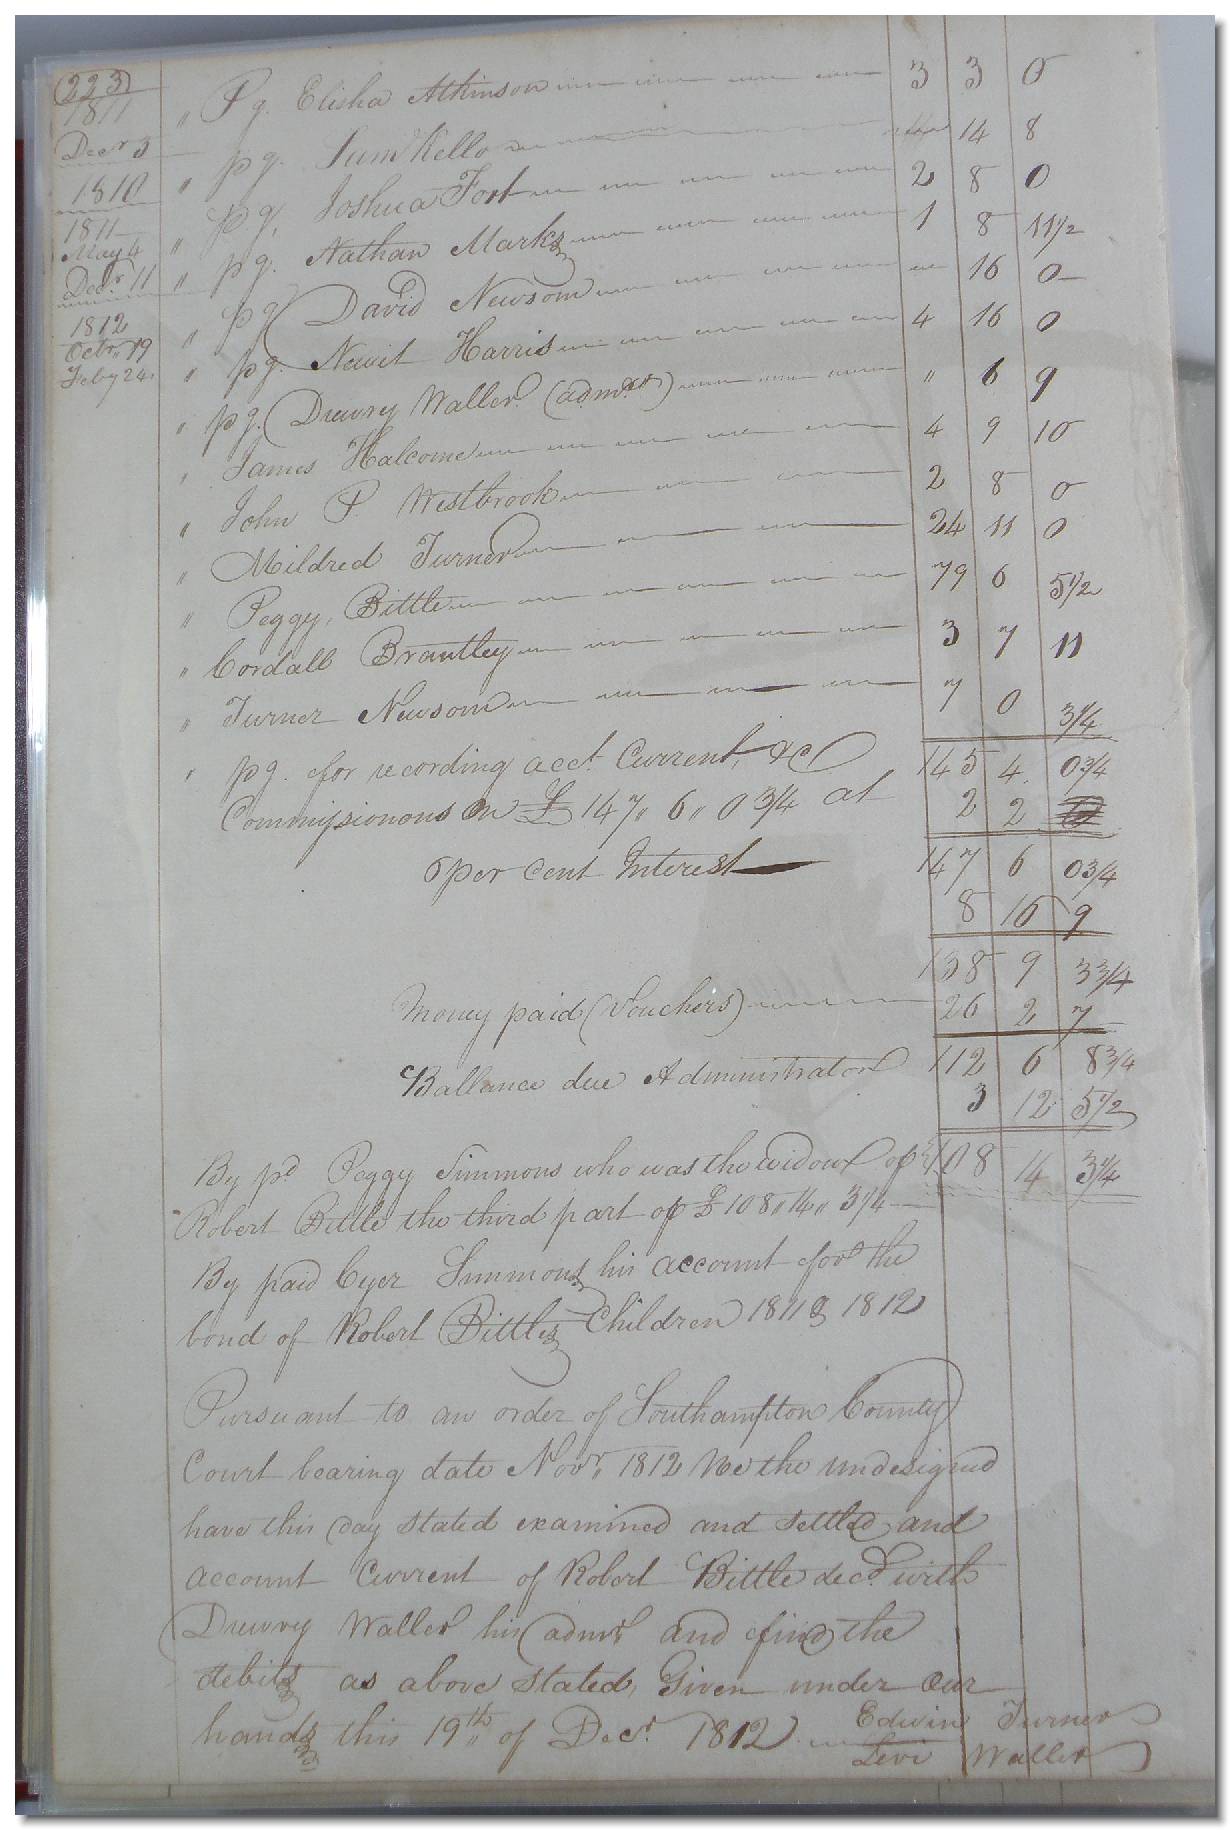 223
1811 " Pg. Elisha Atkinson 3 3 0
Decr 3 " pg. Saml Kello 14 8
1810 " pg. Joshua Fort 2 8 0
1811 May 4 " pg. Nathan Marks 1 8 11 1/2
Decr 11 " pg David Newsom 16 0
1812 Octr. 19 " pg. Newit Harris 4 16 0
Feby 24. " pg. Drewry Waller (admr) " 6 9
" James Halcome 4 9 10
" John P. Westbrook 2 8 0
" Mildred Turner 24 11 0
" Peggy Bittle 79 6 5 1/2
" Cordall Brantley 3 7 11
" Turner Newsom 7 0 3 1/4
" pg. for recording acct. Current, &c 145 4 0 3/4
Commissionons on £ 147 " 6 " 0 3/4 at 2 2
6 per cent Interest 147 6 0 3/4
8 16 9
138 9 3 3/4
Money paid (Vouchers) 26 2 7
112 6 8 3/4
Ballance due Administrator 3 12 5 1/2
By pd Peggy Simmons who was the widow of 108 14 3 1/4
Robert Bittle the third part of £ 108 " 14 " 3 1/4
By paid Cyer Simmons his account for the
bond of Robert Bittles Children 1811 & 1812
Pursuant to an order of Southampton County
Court bearing date Novr. 1812 We the undesigned
have this day stated examined and settled and
account Current of Robert Bittle decd. with
Drewry Waller his admr and find the
debits as above stated, Given under our
hands this 19th of Decr. 1812 Edwin Turner
Levi Waller